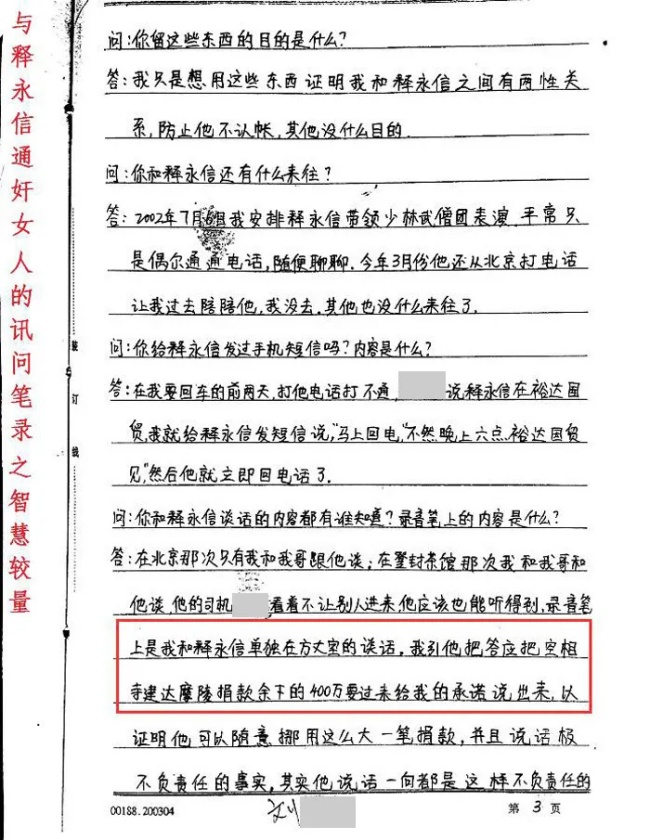 与释永信通奸女人的讯问笔录之智慧较量
问:你留这些东西的目的是什么?
答:我只是想用这些东西证明我和释永信之间有两性关
系,防止他不认帐,其他没什么目的.
问:你和释永信还有什么来往?
答:2002年7月 我安排释永信带领少林武僧团表演.平常只
是偶尔通通电话,随便聊聊.今年3月份他还从北京打电话
让我过去陪陪他,我没去.其他也没什么来往了.
问:你给释永信发过手机短信吗?内容是什么?
答:在我要回车的前两天,打他电话打不通, 说释永信在裕达国
贸,我就给释永信发短信说,"马上回电,不然晚上六点裕达国贸
见,"然后他就立即回电话了.
问:你和释永信谈话的内容都有谁知道?录音笔上的内容是什么?
答:在北京那次只有我和我哥跟他谈;在登封茶馆那次我和我哥和
他谈,他的司机 看着不让别人进来他应该也能听得到,录音笔
上是我和释永信单独在方丈室的谈话,我引他把答应把空相
寺建达摩陵捐款余下的400万要过来给我的承诺说出来,以
证明他可以随意挪用这么大一笔捐款,并且说话极
不负责任的事实,其实他说话一向都是这样不负责任的
装
订
线
00188.200304
刘
第 3 页